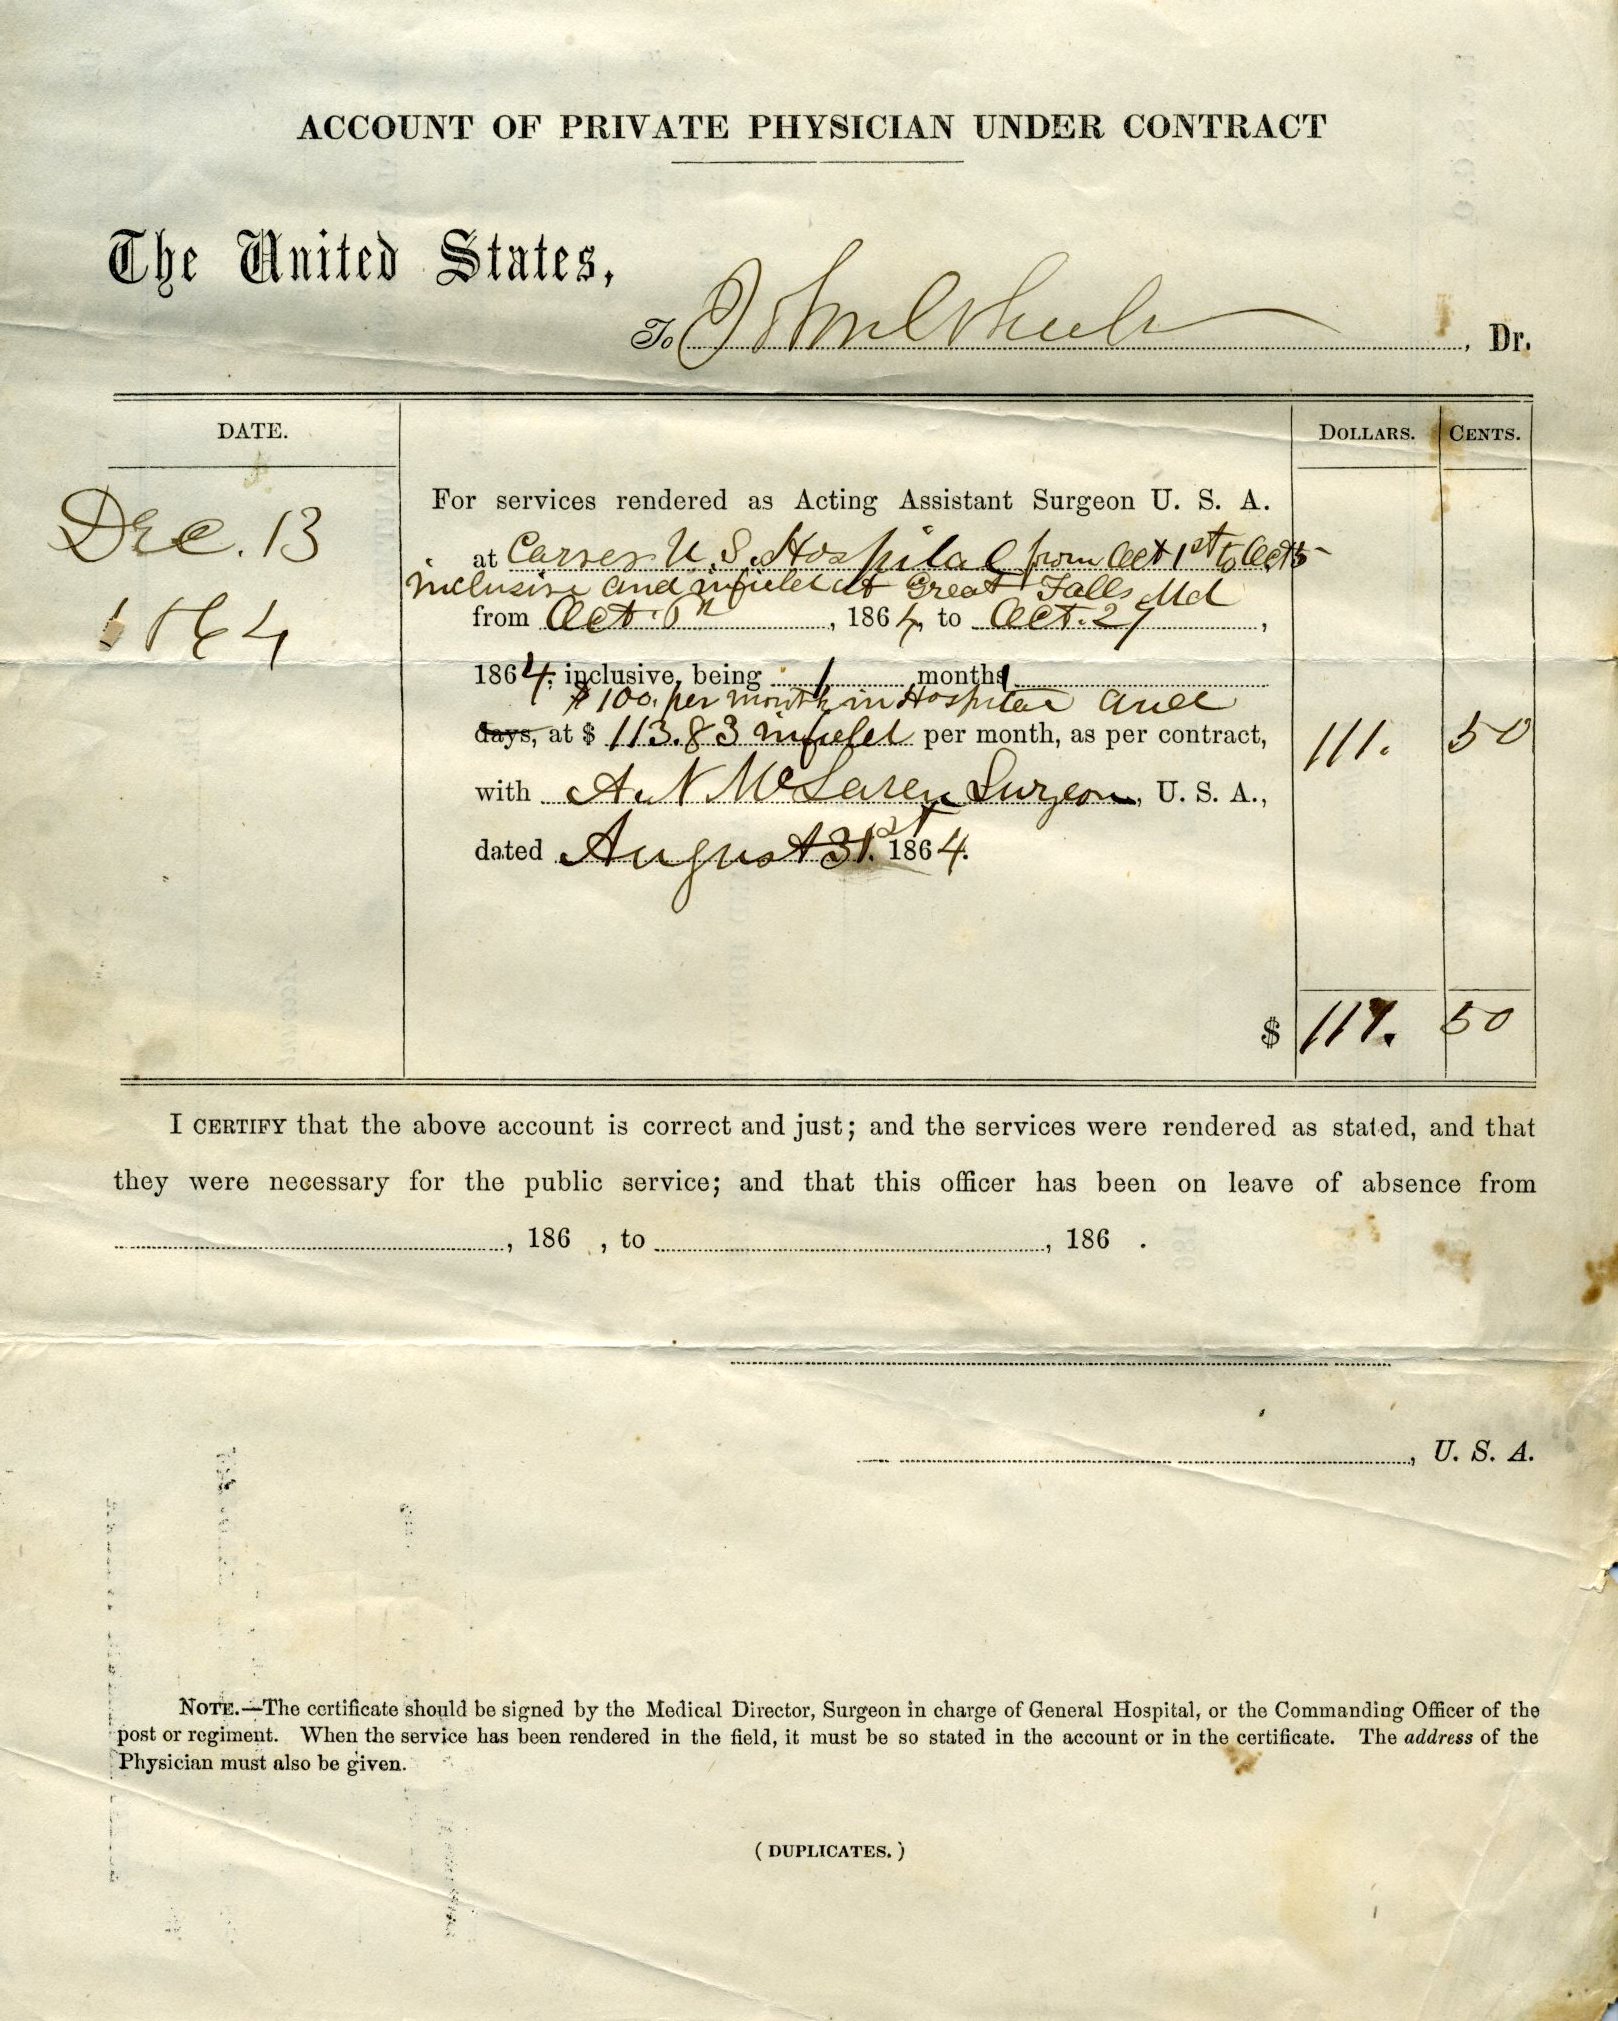 ACCOUNT OF PRIVATE PHYSICIAN UNDER CONTRACT
The United States,
To John , Dr.
DATE. DOLLARS. CENTS.
Dec. 13
1864
For services rendered as Acting Assistant Surgeon U. S. A.
at Carver U. S. Hospital from Oct 1st to Oct 5
inclusive and infield at Great Falls Md
from Oct. , 1864, to Oct. 27,
1864, inclusive, being 1 months
$100. per month in Hospital and
days, at $ 113.83 infield per month, as per contract, 111. 50
with A. N McLaren Surgeon, U. S. A.,
dated August 31st 1864.
$ 111. 50
I CERTIFY that the above account is correct and just; and the services were rendered as stated, and that
they were necessary for the public service; and that this officer has been on leave of absence from
, 186 , to , 186 .
, U. S. A.
NOTE.—The certificate should be signed by the Medical Director, Surgeon in charge of General Hospital, or the Commanding Officer of the
post or regiment. When the service has been rendered in the field, it must be so stated in the account or in the certificate. The address of the
Physician must also be given.
( DUPLICATES. )